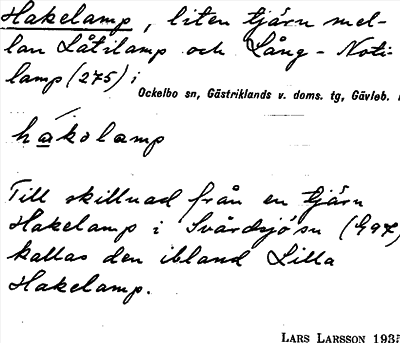 Hakelamp, liten tjärn mel-
lan Låtilamp och Lång-Noti-
lamp (275) i
Ockelbo sn, Gästriklands v. doms. tg, Gävleb.
hákolamp
Till skillnad från en tjärn
Hakelamp i Svärdsjö sn (497)
kallas den ibland Lilla
Hakelamp.
LARS LARSSON 1935